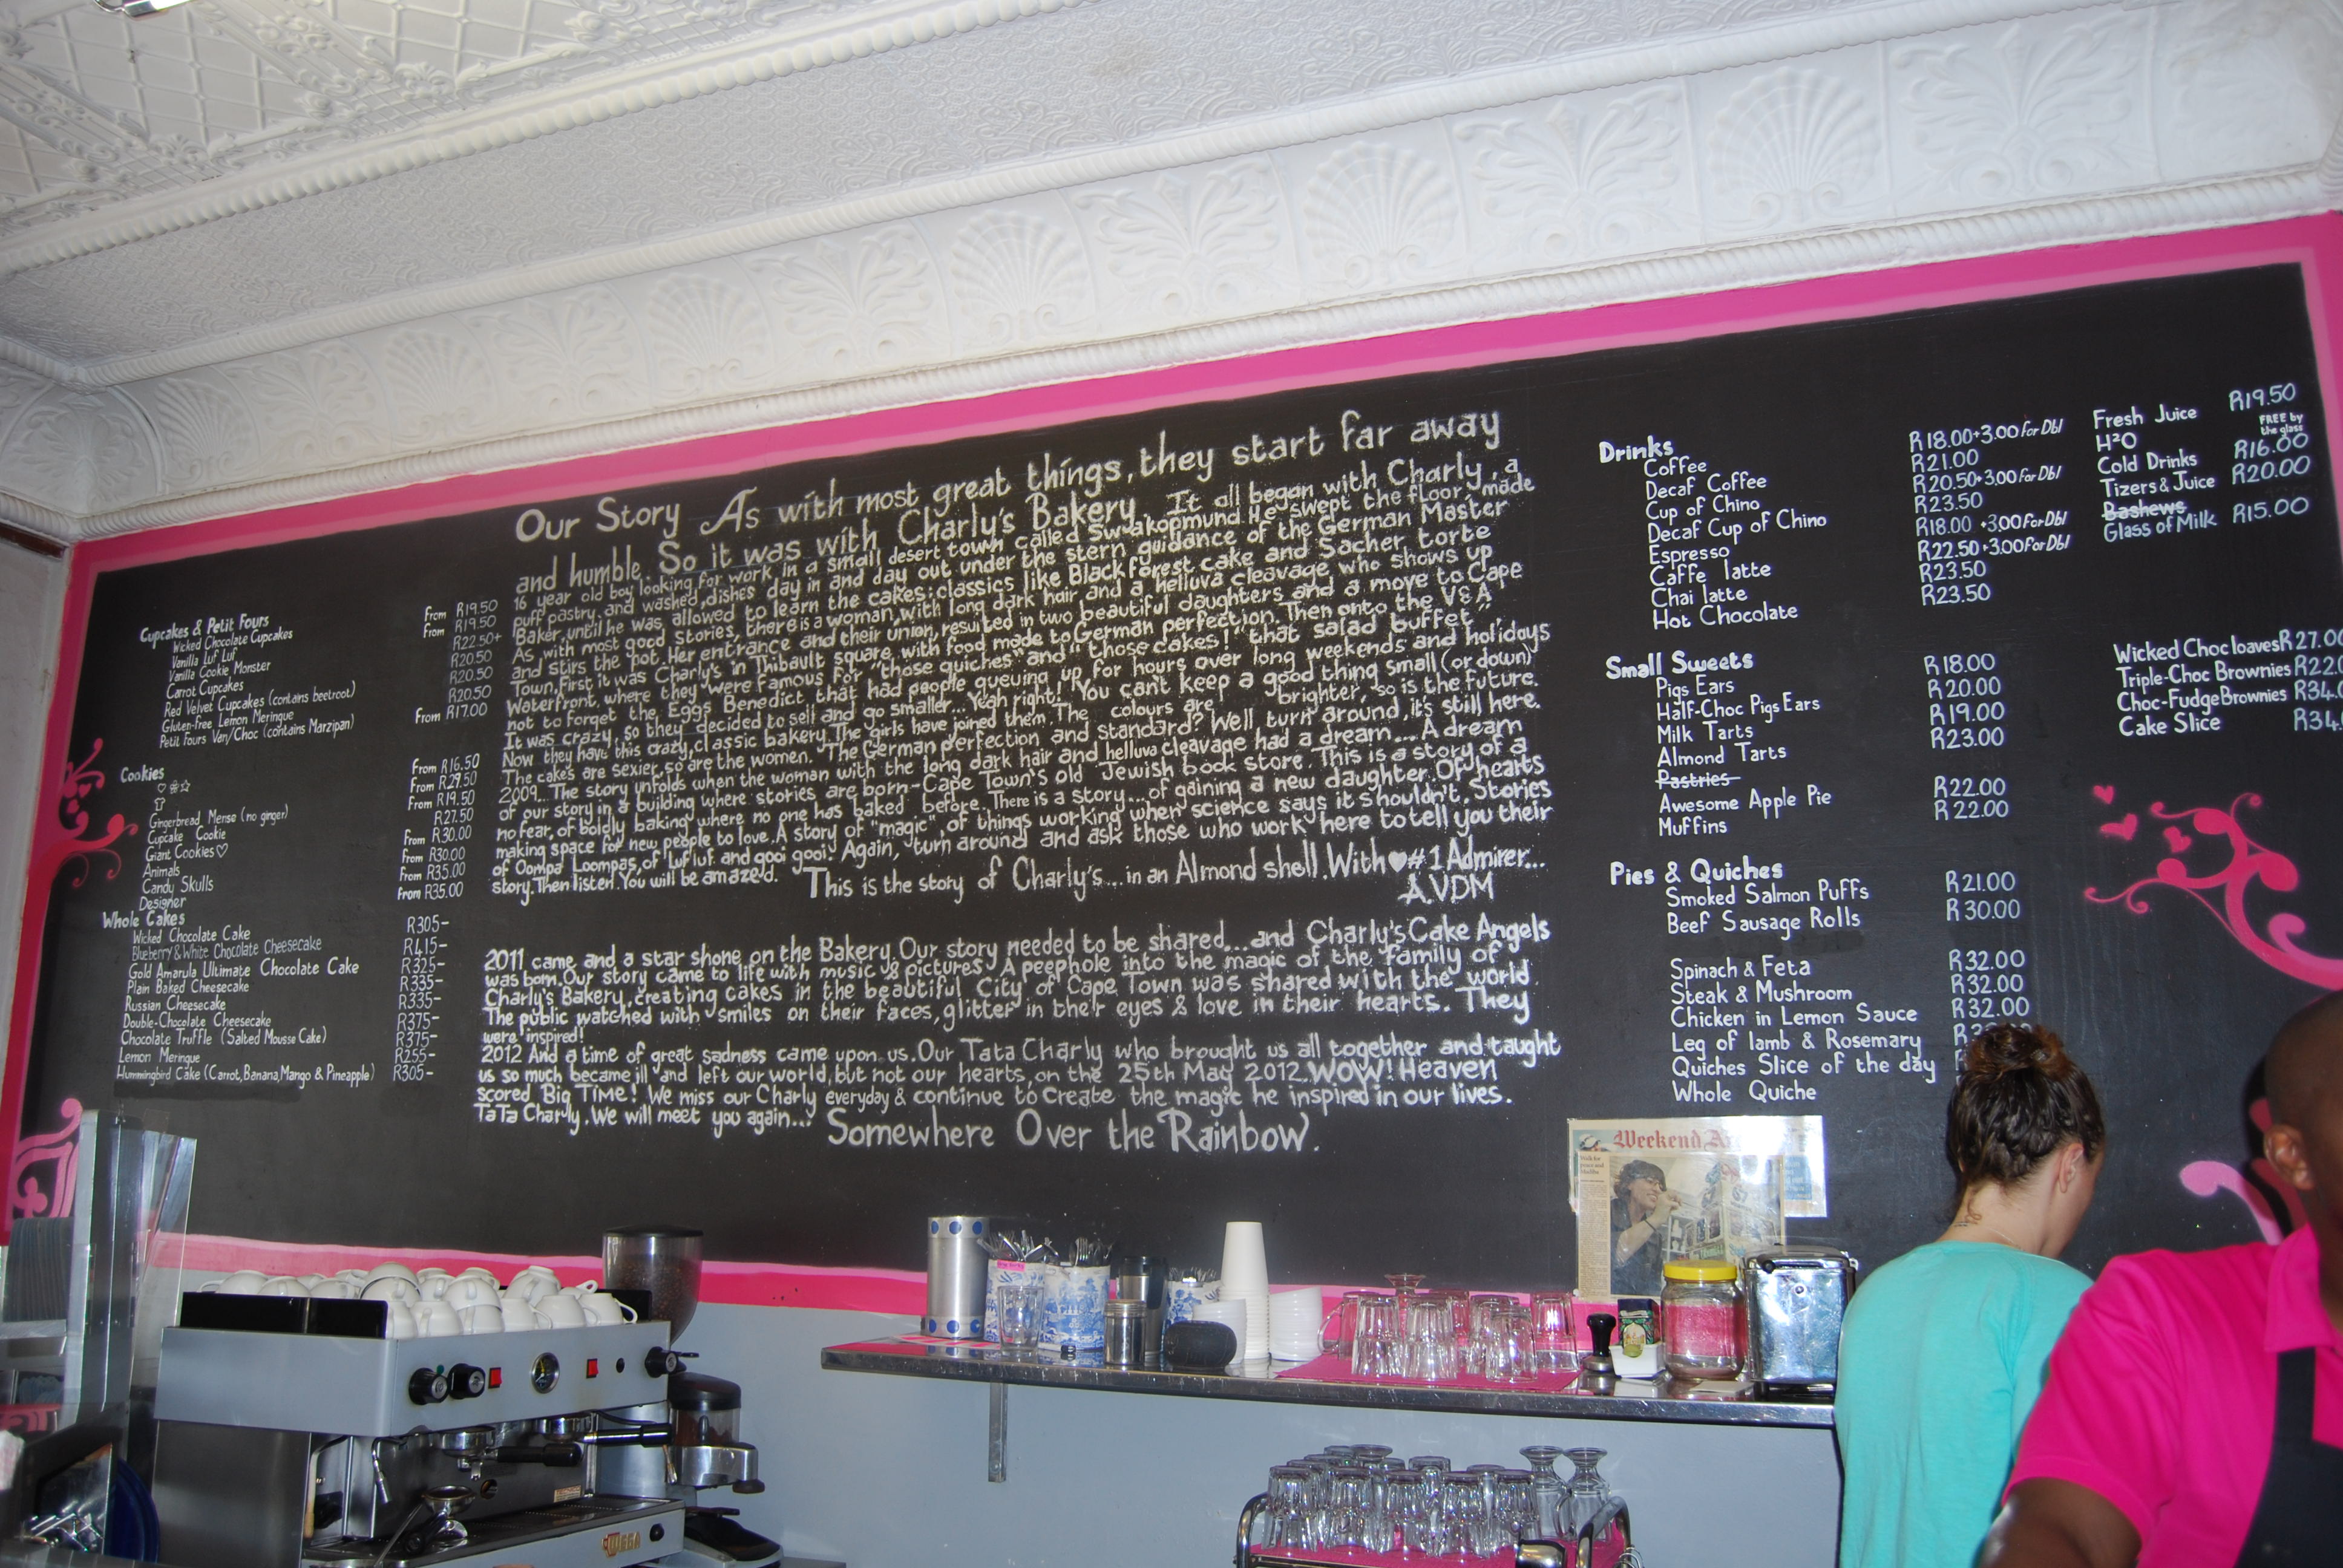 Cupcakes & Petit Fours
Wicked Chocolate Cupcakes From R19.50
Vanilla Luf Luf From R19.50
Vanilla Cookie Monster R22.50+
Carrot Cupcakes R20.50
Red Velvet Cupcakes (contains beetroot) R20.50
Gluten-free Lemon Meringue R20.50
Petit Fours Van/Choc (contains Marzipan) From R17.00
Cookies
From R16.50
From R29.50
Gingerbread Mense (no ginger) From R19.50
Cupcake Cookie R27.50
Giant Cookies ♡ From R30.00
Animals From R30.00
Candy Skulls From R35.00
Designer From R35.00
Whole Cakes
Wicked Chocolate Cake R305-
Blueberry & White Chocolate Cheesecake R415-
Gold Amarula Ultimate Chocolate Cake R325-
Plain Baked Cheesecake R335-
Russian Cheesecake R335-
Double-Chocolate Cheesecake R375-
Chocolate Truffle (Salted Mousse Cake) R375-
Lemon Meringue R255-
Hummingbird Cake (Carrot, Banana, Mango & Pineapple) R305-
Our Story As with most great things, they start far away
and humble. So it was with Charly's Bakery. It all began with Charly, a
16 year old boy looking for work in a small desert town called Swakopmund. He swept the floor, made
puff pastry, and washed dishes day in and day out under the stern guidance of the German Master
Baker, until he was allowed to learn the cakes: classics like Blackforest cake and Sacher torte
As with most good stories, there is a woman, with long dark hair, and a helluva cleavage who shows up
and stirs the pot. Her entrance and their union, resulted in two beautiful daughters and a move to Cape
Town. First it was Charly's in Thibault square, with food made to German perfection. Then onto the V&A
Waterfront, where they were famous for "those quiches" and "those cakes!" "that salad buffet"
not to forget the Eggs Benedict that had people queuing up for hours over long weekends and holidays
It was crazy, so they decided to sell and go smaller... Yeah right! You can't keep a good thing small (or down)
Now they have this crazy, classic bakery. The girls have joined them. The colours are brighter, so is the future.
The cakes are sexier, so are the women. The German perfection and standard? Well, turn around, it's still here.
2009... The story unfolds when the woman with the long dark hair and helluva cleavage had a dream... A dream
of our story in a building where stories are born - Cape Town's old Jewish book store. This is a story of a
no fear, of boldly baking where no one has baked before. There is a story... of gaining a new daughter. Of hearts
making space for new people to love. A story of "magic", of things working when science says it shouldn't. Stories
of Oompa Loompas, of luf luf and gooi gooi! Again, turn around and ask those who work here to tell you their
story. Then listen. You will be amazed. This is the story of Charly's... in an Almond shell. With ♥ #1 Admirer...
A.VDM
2011 came and a star shone on the Bakery. Our story needed to be shared... and Charly's Cake Angels
was born. Our story came to life with music & pictures. A peephole into the magic of the family of
Charly's Bakery, creating cakes in the beautiful City of Cape Town was shared with the world.
The public watched with smiles on their faces, glitter in their eyes & love in their hearts. They
were inspired!
2012 And a time of great sadness came upon us. Our Tata Charly who brought us all together and taught
us so much became ill and left our world, but not our hearts, on the 25th May 2012. WOW! Heaven
scored Big TIME! We miss our Charly everyday & continue to create the magic he inspired in our lives.
TaTa Charly. We will meet you again... Somewhere Over the Rainbow.
Drinks
Coffee R18.00+3.00 for Dbl
Decaf Coffee R21.00
Cup of Chino R20.50+3.00 for Dbl
Decaf Cup of Chino R23.50
Espresso R18.00 +3.00 For Dbl
Caffe latte R22.50+3.00 For Dbl
Chai latte R23.50
Hot Chocolate R23.50
Fresh Juice R19.50
H²O FREE by the glass
Cold Drinks R16.00
Tizers & Juice R20.00
Bashews
Glass of Milk R15.00
Small Sweets
Pigs Ears R18.00
Half-Choc Pigs Ears R20.00
Milk Tarts R19.00
Almond Tarts R23.00
Pastries
Awesome Apple Pie R22.00
Muffins R22.00
Wicked Choc loaves R27.00
Triple-Choc Brownies R22.
Choc-Fudge Brownies R34.
Cake Slice R34.
Pies & Quiches
Smoked Salmon Puffs R21.00
Beef Sausage Rolls R30.00
Spinach & Feta R32.00
Steak & Mushroom R32.00
Chicken in Lemon Sauce R32.00
Leg of lamb & Rosemary
Quiches Slice of the day
Whole Quiche
Weekend
WEGA